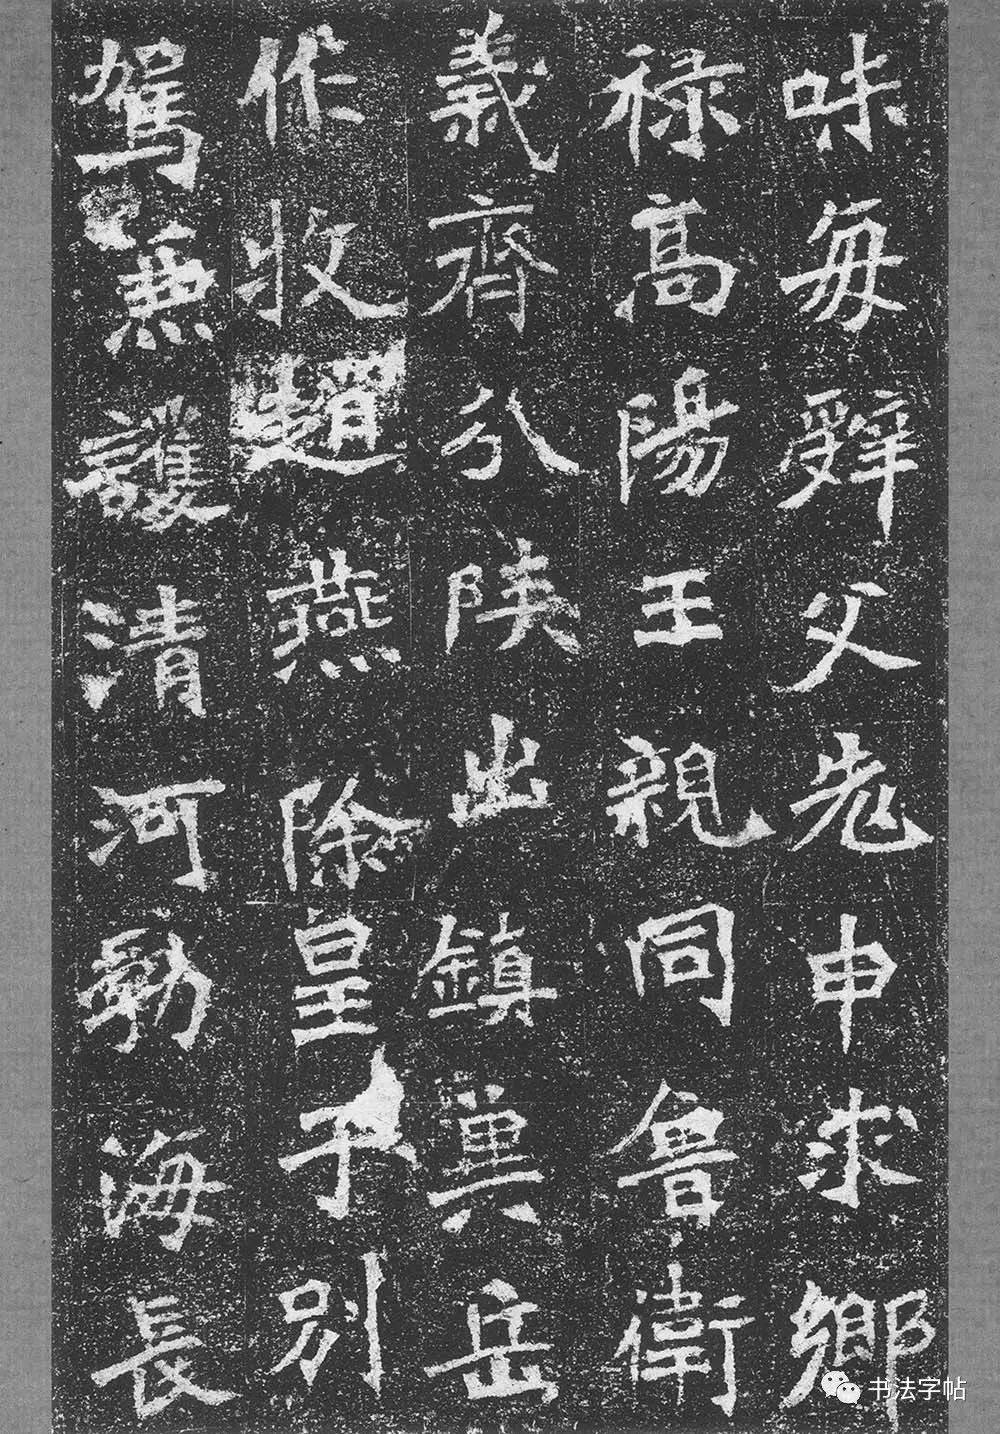 味每辤父老申求鄉
祿高陽王親同魯衛
義齊分陝出鎮冀岳
作牧趙燕除皇子別
駕兼護清河勃海長
书法字帖